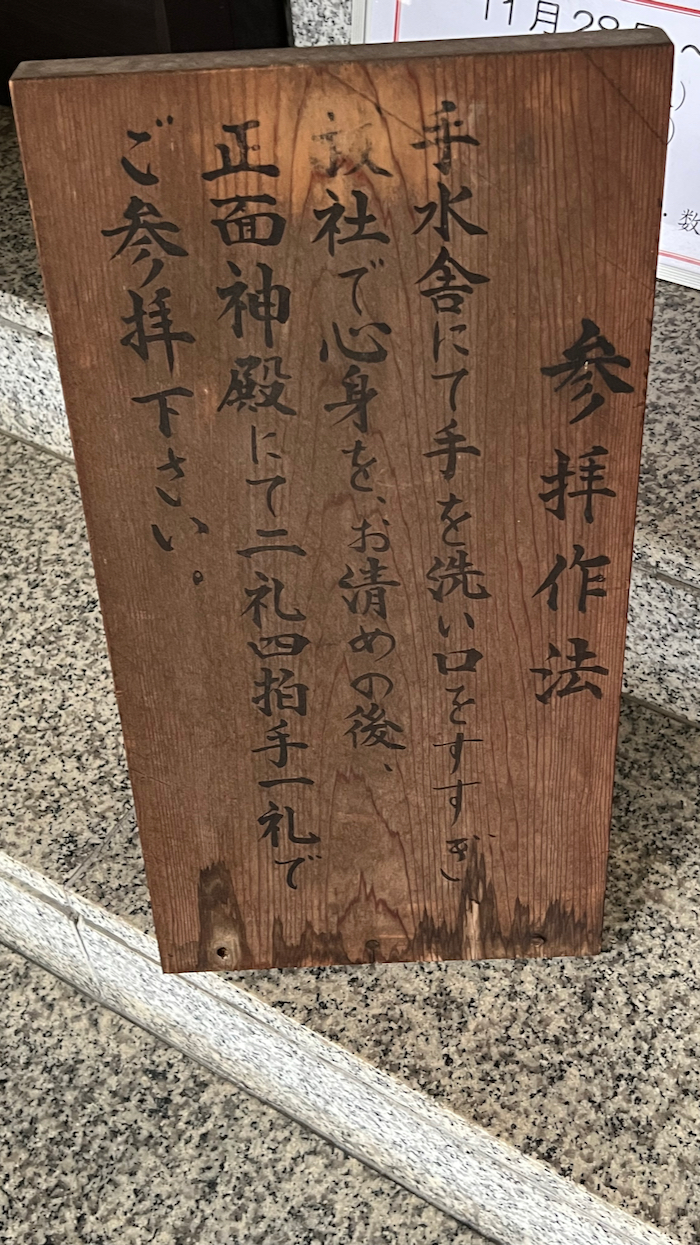 参拝作法
手水舎にて手を洗い口をすすぎ
祓社で心身を、お清めの後、
正面神殿にて二礼四拍手一礼で
ご参拝下さい。
11月28日
数